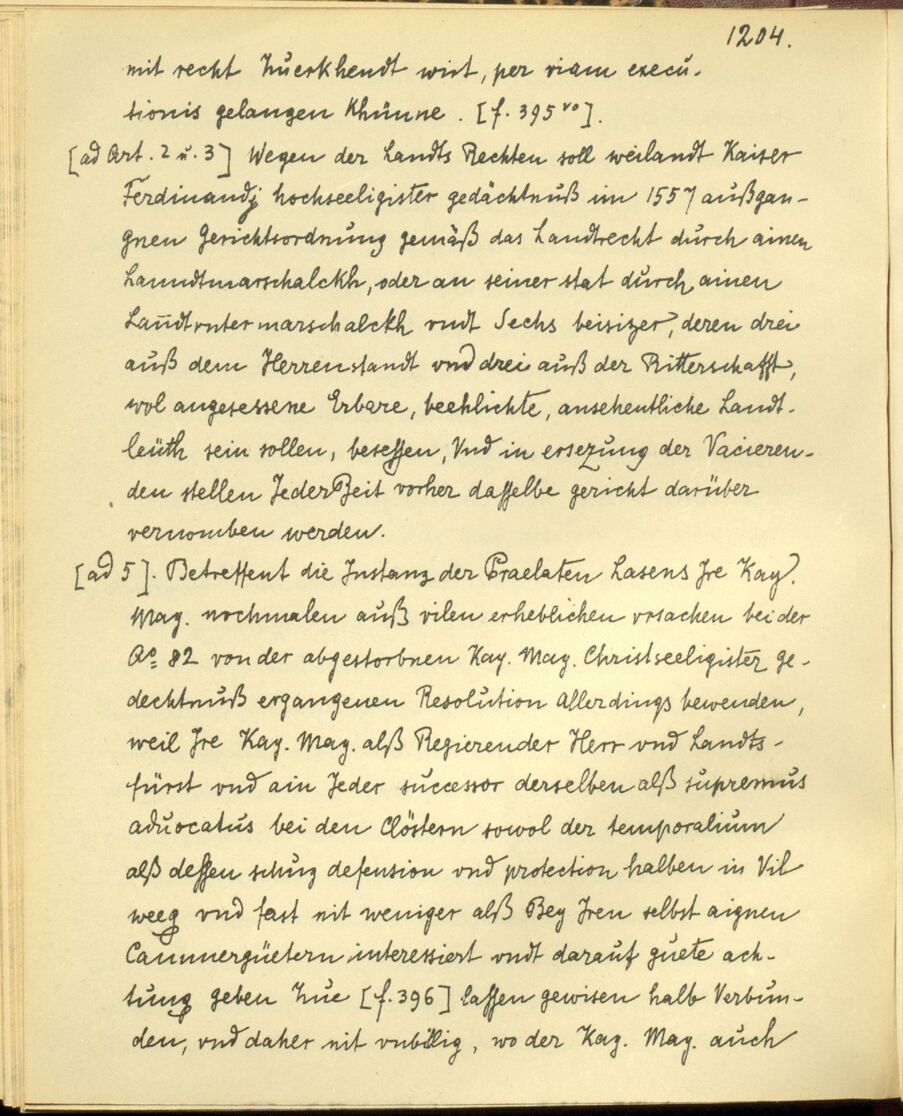 1204.
mit recht Zuerkhendt wirt, per viam execu-
tionis gelangen khünne. [f. 395 vo].
[ad Art. 2 u. 3] Wegen der Landts Rechten soll weilandt Kaiser
Ferdinandj hochseeligister gedächtnuß im 1557 außgan-
gnen Gerichtsordnung gemäß das Landtrecht durch ainen
Lanndtmarschalckh, oder an seiner stat durch ainen
Lan̄dtuntermarschalckh vndt Sechs beisizer, deren drei
auß dem Herrenstandt vnd drei auß der Ritterschafft,
wol angesessene Erbare, beehlichte, ansehentliche Landt-
leüth sein sollen, besessen, Vnd in ersezung der Vacieren-
den stellen JederZeit vorher dasselbe gericht darüber
vernomben werden.
[ad 5]. Betreffent die Instanz der Praelaten Lasens Jre Kay.
May. nochmalen auß vilen erheblichen vrsachen bei der
Ao. 82 von der abgestorbnen Kay. May. Christseeligister ge-
dechtnuß ergangenen Resolution Allerdings bewenden,
weil Jre Kay. May. alß Regierender Herr vnd Landts-
fürst vnd ain Jeder successor derselben alß supremus
aduocatus bei den Clöstern sowol der temporalium
alß dessen schuz defension vnd protection halben in Vil
weeg vnd fast nit weniger alß Bey Jren selbst aignen
Cammergüetern interessiert vndt darauf guete ach-
tung geben Zue [f. 396] lassen gewisen halb Verbun-
den, vnd daher nit vnbillig, wo der Kay. May. auch